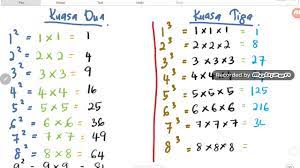 Kuasa Dua
1² = 1 × 1 = 1
2² = 2 × 2 = 4
3² = 3 × 3 = 9
4² = 4 × 4 = 16
5² = 5 × 5 = 25
6² = 6 × 6 = 36
7² = 7 × 7 = 49
8² = 8 × 8 = 64
Kuasa Tiga
1³ = 1 × 1 × 1 = 1
2³ = 2 × 2 × 2 = 8
3³ = 3 × 3 × 3 = 27
4³ = 4 × 4
5³ = 5 × 5 × 5 = 125
6³ = 6 × 6 × 6 = 216
7³ = 7 × 7 × 7 = 34
8³ = 8 × 8 × 8
RECORDED BY